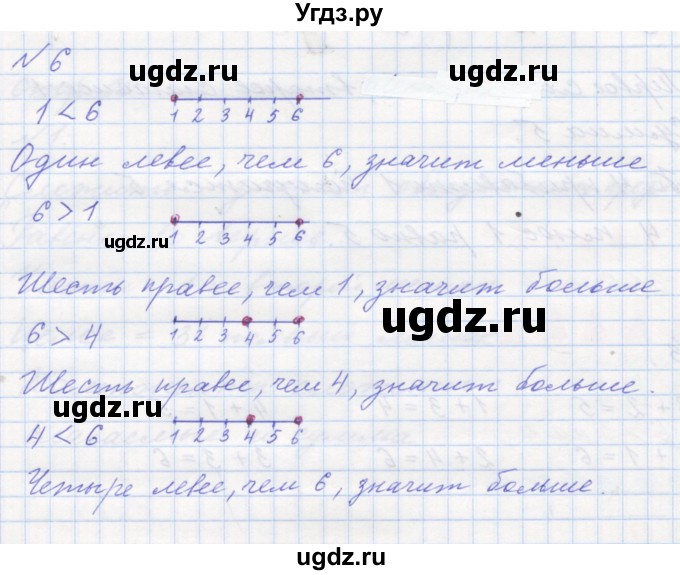 Угдз.ру
№ 6
ugdz.ru
ugdz.ru
1 < 6
1 2 3 4 5 6
Один левее, чем 6, значит меньше
6 > 1
ugdz.ru
1 2 3 4 5 6
Шесть правее, чем 1, значит больше
ugdz.ru
6 > 4
1 2 3 4 5 6
Шесть правее, чем 4, значит больше.
ugdz.ru
4 < 6
1 2 3 4 5 6
Четыре левее, чем 6, значит больше.
ugdz.ru
ugdz.ru